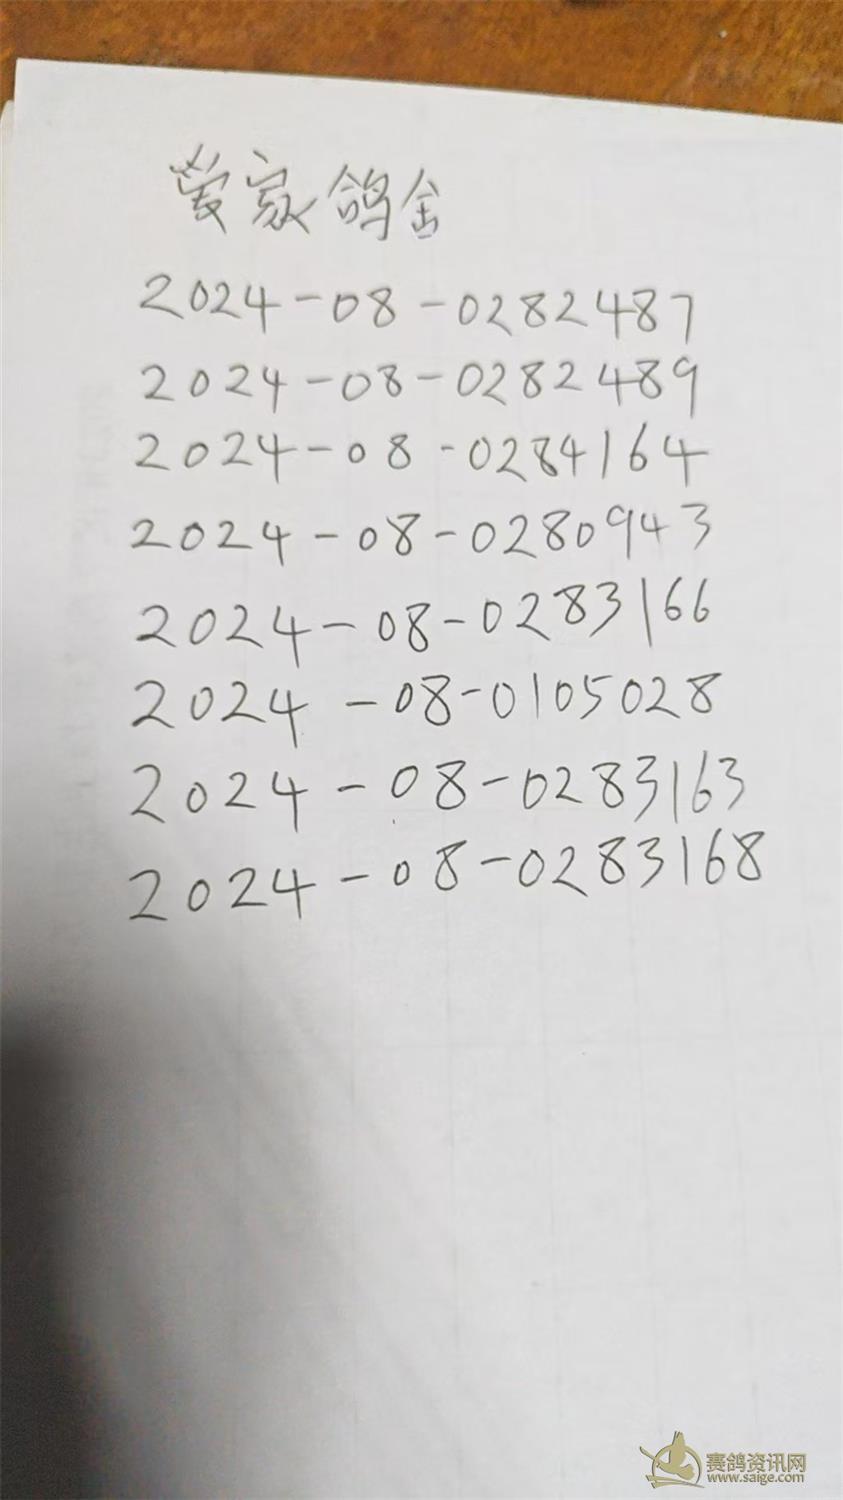 家鸽舍
2024-08-0282487
2024-08-0282489
2024-08-0284164
2024-08-0280943
2024-08-0283166
2024-08-0105028
2024-08-0283163
2024-08-0283168
赛鸽资讯网
www.saige.com